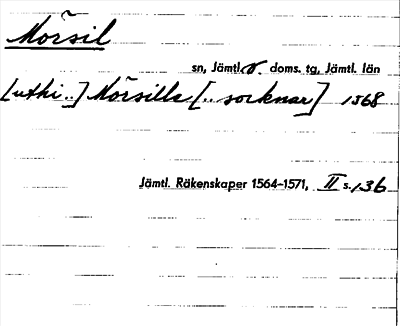 Mörsil
sn, Jämtl. v. doms. tg, Jämtl. län
[uthi ..] Mörsills [.. socknar] 1568
Jämtl. Räkenskaper 1564-1571, II s. 136